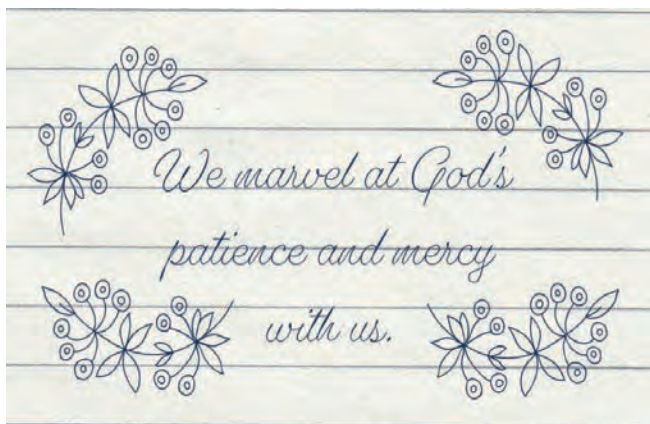 We marvel at God's
patience and mercy
with us.